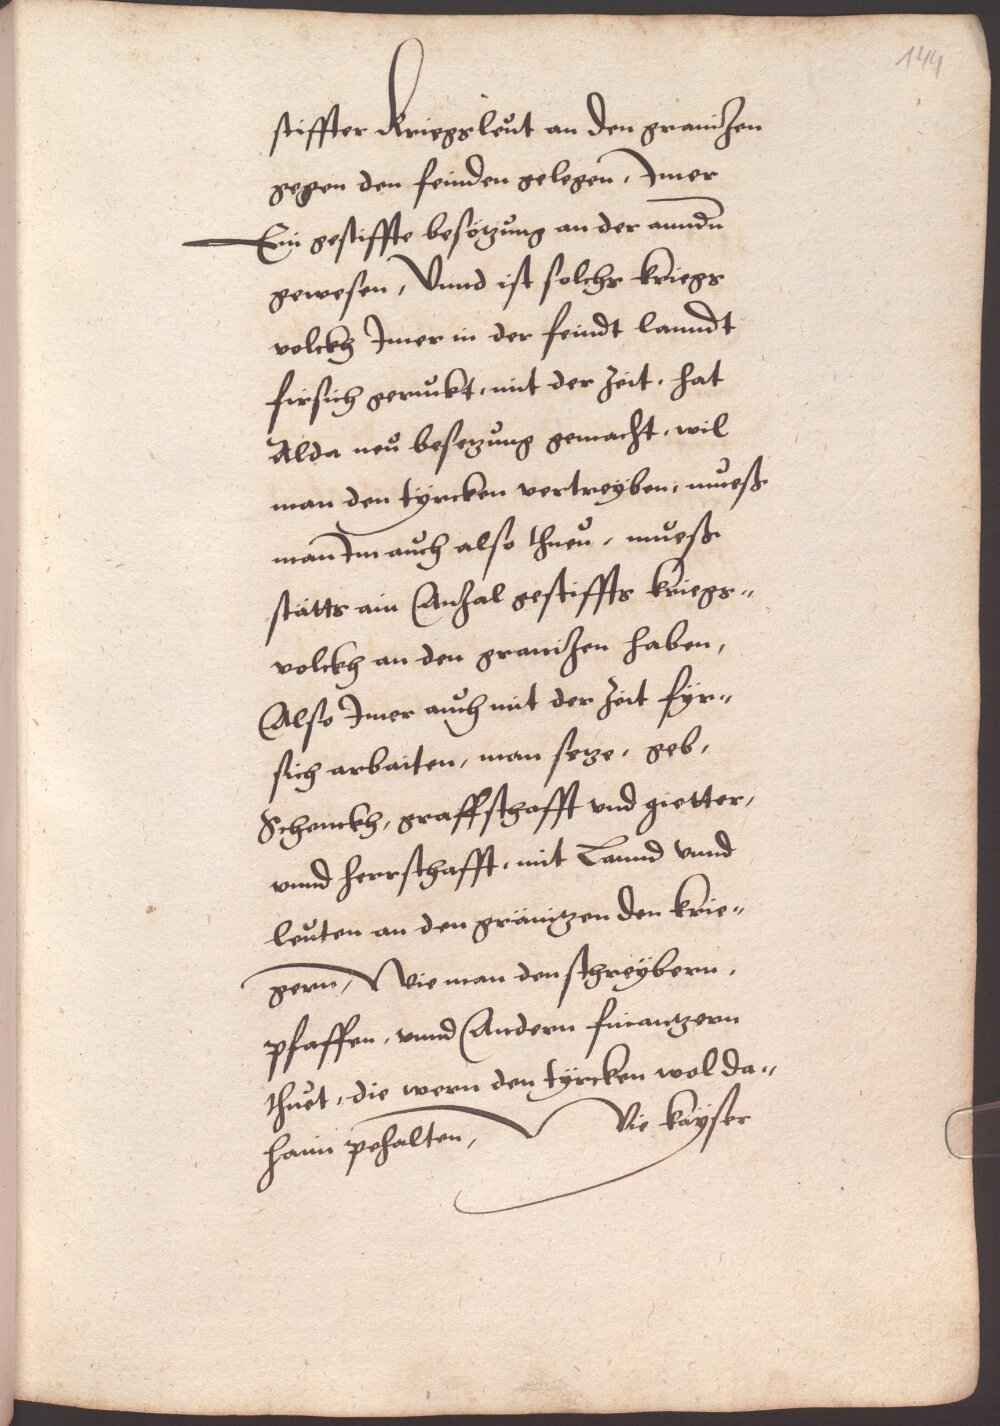 144
stiffter Kriegsleut an den granizen
gegen den feinden gelegen, Imer
Ein gestiffte besötzung an der anndn
gewesen, Vnnd ist solchs kriegs
volckh Imer in der feindt lanndt
firsich geruckt, mit der zeit, hat
Alda neu besetzung gemacht, wil
man den tÿrcken vertreÿben, mueß
man Im auch also thuen, mueß
stätts ain Anzal gestiffts kriegs-
volckh an den granizen haben,
Also Imer auch mit der zeit fÿr-
sich arbaiten, man setze, geb,
Schenckh, graffschafft vnd gietter,
vnnd herrschafft, mit Lannd vnnd
leuten an den gränitzen den krie-
gern, Wie man den schreÿbern,
pfaffen, vnnd Andern finantzern
thuet, die wern den tÿrcken wol da-
haim pehalten, Die kaÿser